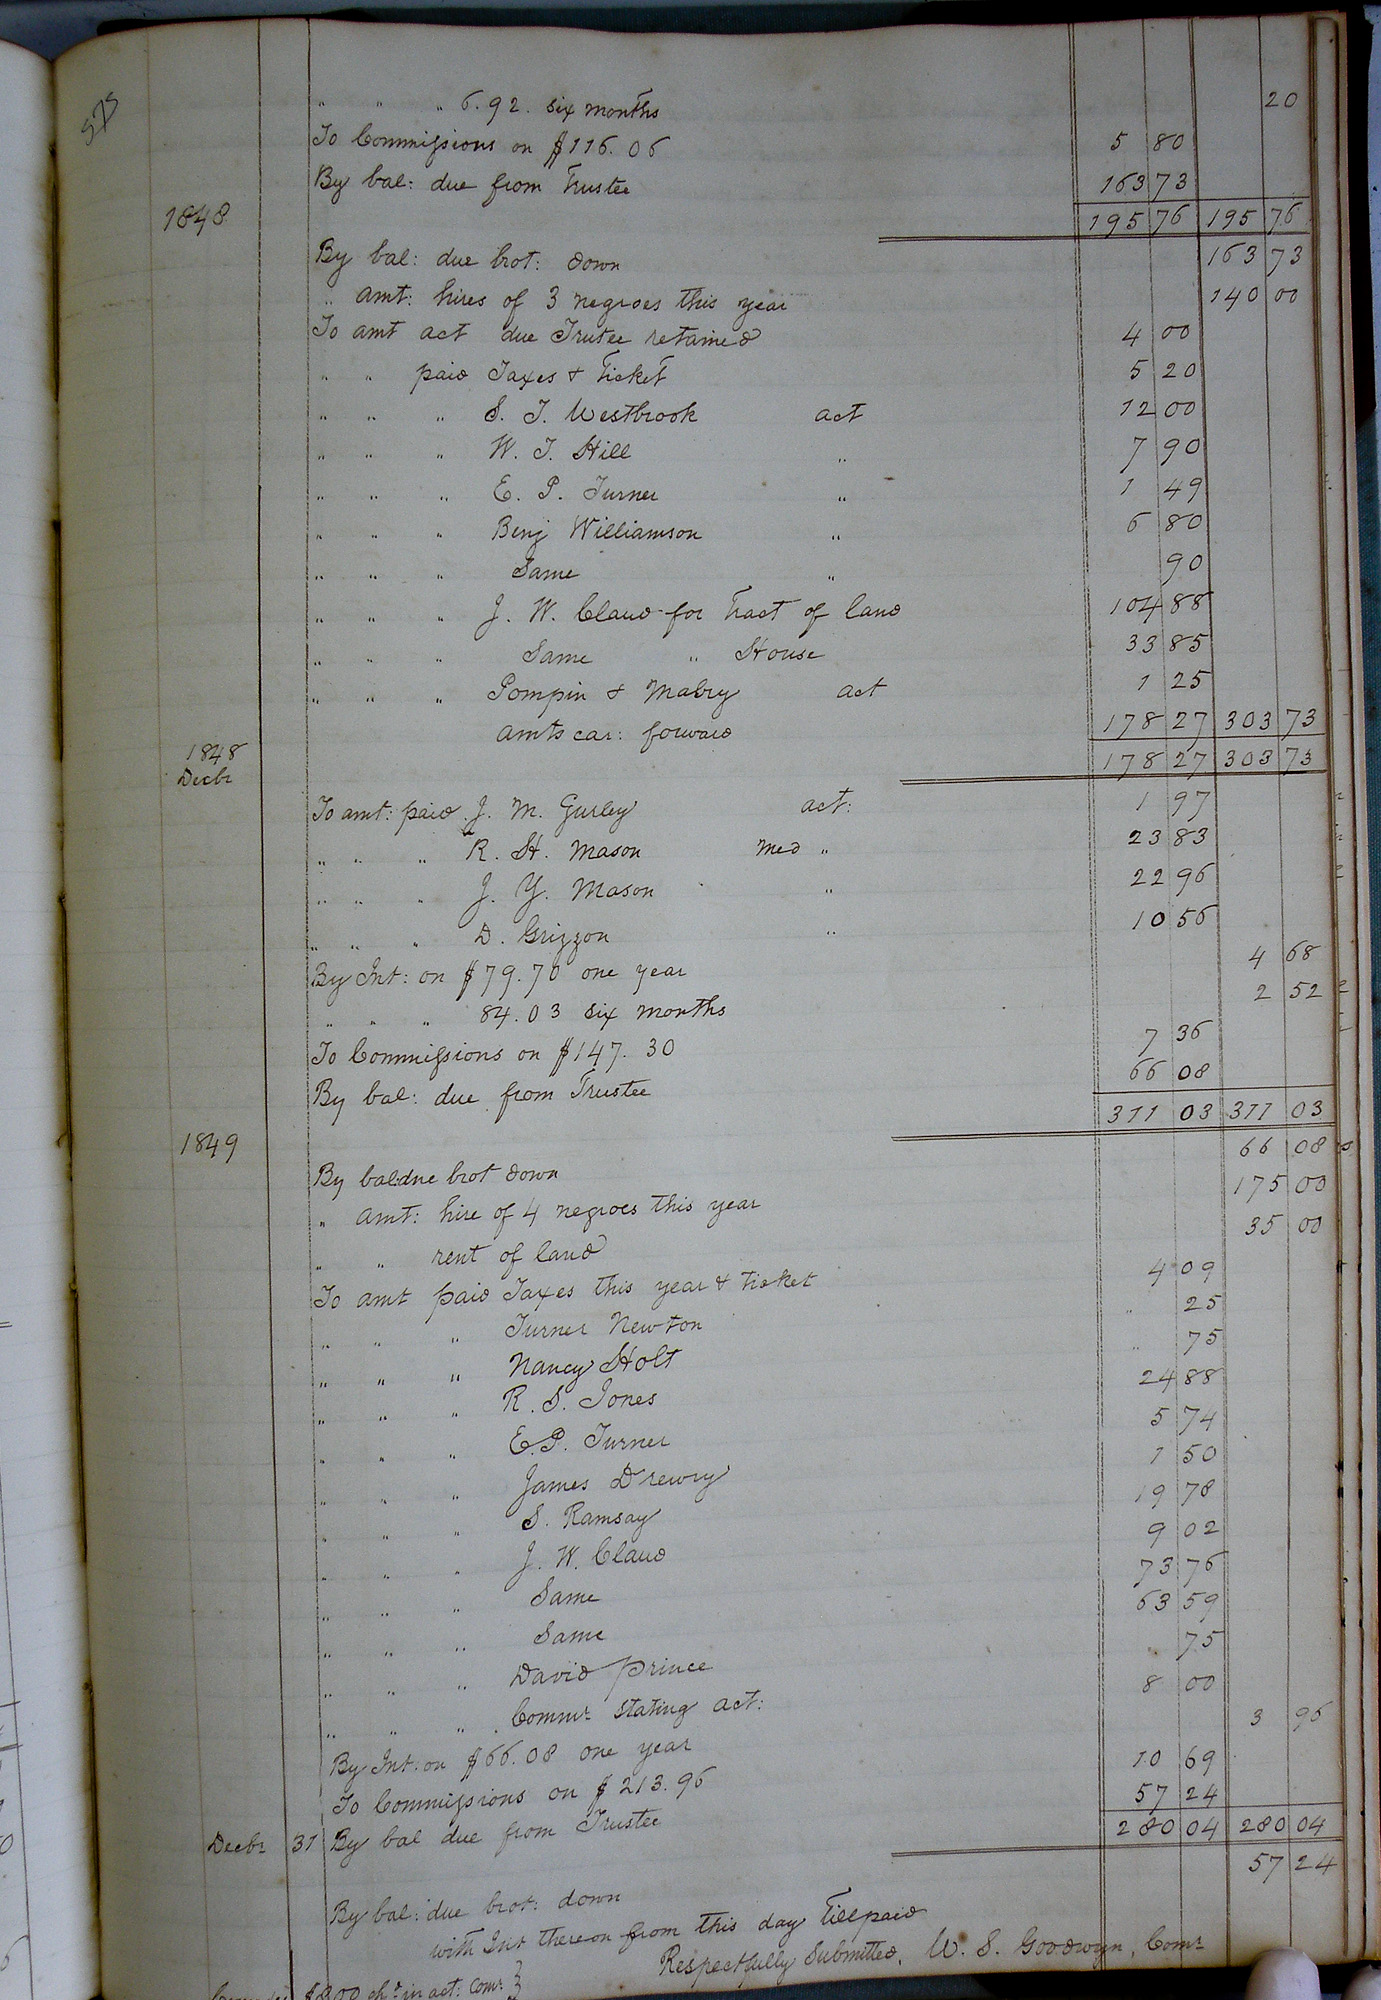 575
" " " 6.92. six months 20
To Commissions on $116.06 5 80
By bal: due from Trustee 163 73
1848 195 76 195 76
By bal: due brot: down 163 73
" amt: hires of 3 negroes this year 140 00
To amt act due Trutee retained 4 00
" " paid Taxes & Ticket 5 20
" " " S. T. Westbrook act 12 00
" " " W. T. Hill " 7 90
" " " E. P. Turner " 1 49
" " " Benj Williamson " 6 80
" " " Same " 90
" " " J. W. Claud for Tract of land 104 88
" " " Same " House 33 85
" " " Pompin & Mabry act 1 25
amts car: forward 178 27 303 73
1848 178 27 303 73
Decbr
To amt: paid J. M. Gurley act: 1 97
" " " R. H. Mason Med " 23 83
" " " J. Y. Mason " 22 96
" " " D. Grizzon " 10 56
By Int: on $79.70 one year 4 68
" " " 84.03 six months 2 52
To Commissions on $147.30 7 36
By bal: due from Trustee 66 08
311 03 311 03
1849 66 08
By bal:due brot down
" amt: hire of 4 negroes this year 175 00
" " rent of land 35 00
To amt paid Taxes this year & ticket 4 09
" " " Turner Newton " 25
" " " Nancy Holt " 75
" " " R. S. Jones 24 88
" " " E. P. Turner 5 74
" " " James Drewry 1 50
" " " S. Ramsay 19 78
" " " J. W. Claud 9 02
" " " Same 73 76
" " " Same 63 59
" " " David Prince 75
" " " Commr stating act: 8 00
By Int: on $66.08 one year 3 96
To Commissions on $213.96 10 69
Decbr 31 By bal due from Trustee 57 24
280 04 280 04
By bal: due brot: down 57 24
with Int thereon from this day Till paid
Respectfully Submitted, W. S. Goodwyn, Comr
$8.00 chd in act: Comr }